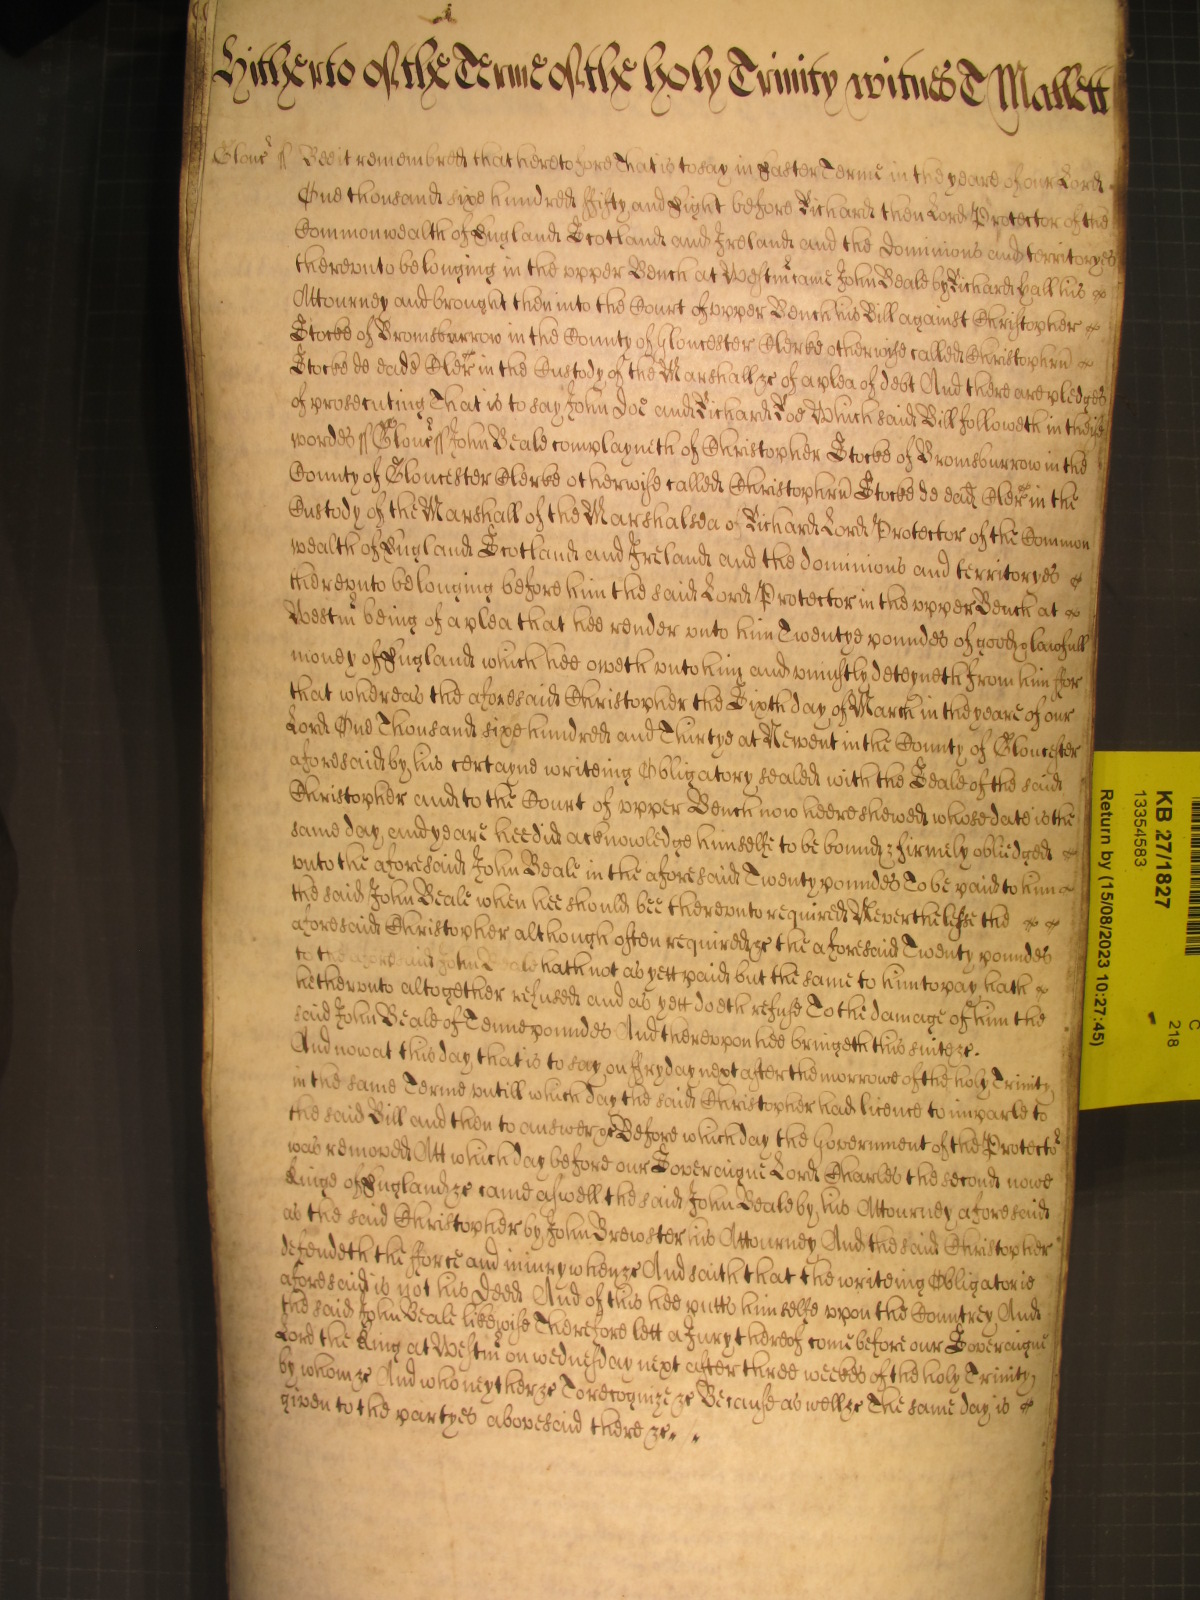 Hitherto of the Terme of the holy Trinity witnes T Mallett
Glouc ss Bee it remembred that heretofore That is to say in Easter Terme in the yeare of our Lord
One thousand sixe hundred fifty and Eight before Richard then Lord Protector of the
Commonwealth of England Scotland and Ireland and the dominions and territoryes
therevnto belonging in the vpper Bench at Westm came John Beale by Richard Hall his
Attourney and brought then into the Court of vpper Bench his Bill against Christopher
Stocke of Bromsburrow in the County of Gloucester Clerke otherwise called Christopherū
Stocke de ead Cler in the Custody of the Marshall &c of a plea of debt And there are pledges
of prosecuting That is to say John Doe and Richard Roe Which said Bill followeth in theis
wordes ss Glouc ss John Beale complayneth of Christopher Stocke of Bromsburrow in the
County of Gloucester Clerke otherwise called Christopherū Stocke de ead Cler in the
Custody of the Marshall of the Marshalsea of Richard Lord Protector of the Common
wealth of England Scotland and Ireland and the dominions and territoryes
therevnto belonging before him the said Lord Protector in the vpper Bench at
Westm being of a plea that hee render vnto him Twentye poundes of good & lawfull
money of England which hee oweth vnto him and vniustly deteyneth from him ffor
that whereas the aforesaid Christopher the Sixth day of March in the yeare of our
Lord One Thousand sixe hundred and Thirtye at Newent in the County of Gloucester
aforesaid by his certayne writeing Obligatory sealed with the Seale of the said
Christopher and to the Court of vpper Bench now heere shewed whose date is the
same day and yeare hee did acknowledge himselfe to be bound & firmely obliedged
vnto the aforesaid John Beale in the aforesaid Twenty poundes To be paid to him
the said John Beale when hee should bee therevnto required Neverthelesse the
aforesaid Christopher although often required &c the aforesaid Twenty poundes
to the aforesaid John Beale hath not as yett paid but the same to him to pay hath
hetherunto altogether refused and as yett doeth refuse To the damage of him the
said John Beale of Tenne poundes And therevpon hee bringeth this suite &c.
And now at this day that is to say on ffryday next after the morrowe of the holy Trinity
in the same Terme vntill which day the said Christopher had licence to imparle to
the said Bill and then to answer &c Before which day the Government of the Protector
was removed Att which day before our Soveraigne Lord Charles the second nowe
Kinge of England &c came aswell the said John Beale by his Attourney aforesaid
as the said Christopher by John Brewster his Attourney And the said Christopher
defendeth the fforce and iniury when &c And saith that the writeing Obligatorie
aforesaid is not his Deed And of this hee putts himselfe vpon the Countrey And
the said John Beale likewise Therefore lett a Jury thereof come before our Soveraigne
Lord the King at Westm on wednesday next after three weekes of the holy Trinity
by whom &c And who neyther &c To recognize &c Because as well &c The same day is
given to the partyes abovesaid there &c.
KB 27/1827
13354583
Return by (15/08/2023 10:27:45)
218
C